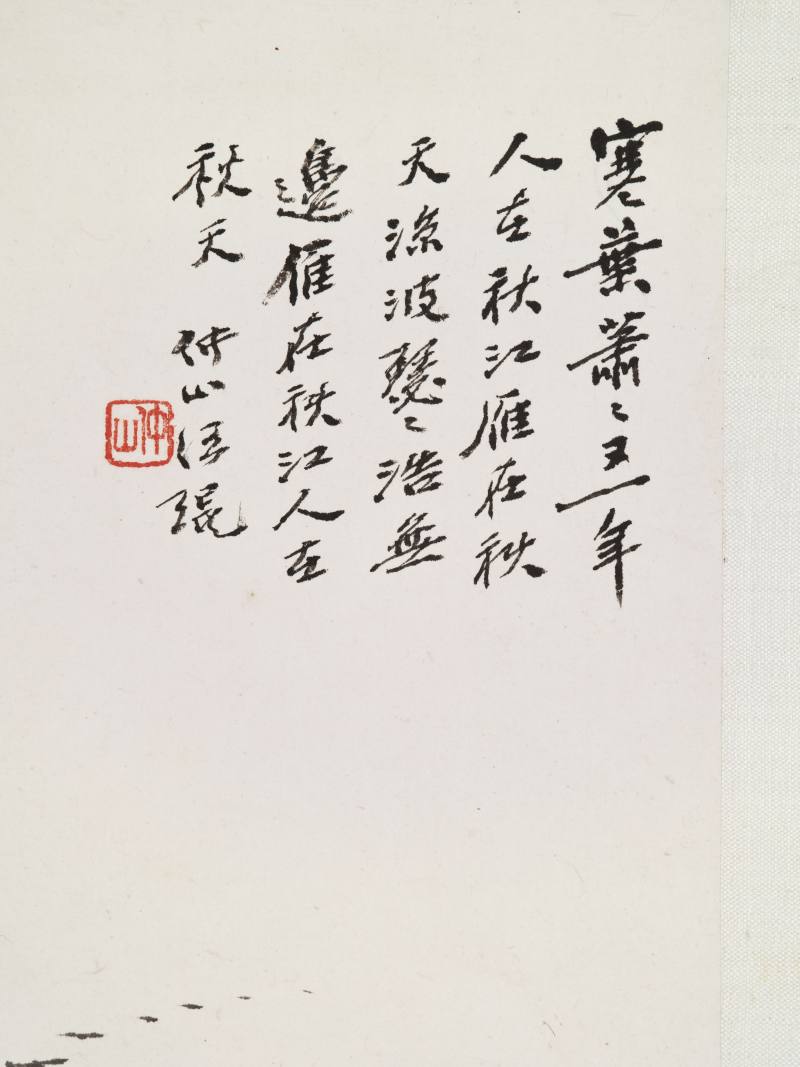 寒葉蕭〻又一年
人在秋江雁在秋
天涼波瑟〻浩無
邊雁在秋江人在
秋天 仲山汪琨
仲山